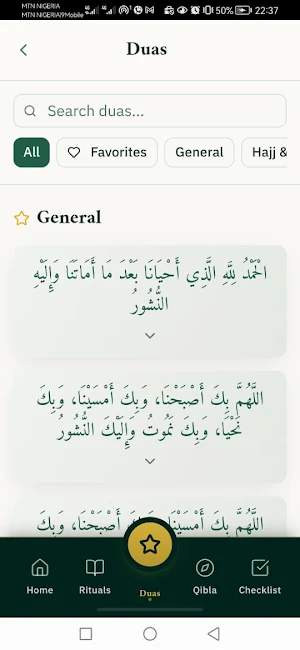 MTN NIGERIA
MTN NIGERIA|9Mobile 50% 22:37
Duas
Search duas...
All Favorites General Hajj &
General
الْحَمْدُ لِلَّهِ الَّذِي أَحْيَانَا بَعْدَ مَا أَمَاتَنَا وَإِلَيْهِ
النُّشُورُ
اللَّهُمَّ بِكَ أَصْبَحْنَا، وَبِكَ أَمْسَيْنَا، وَبِكَ
نَحْيَا، وَبِكَ نَمُوتُ وَإِلَيْكَ النُّشُورُ
اللَّهُمَّ بِكَ أَمْسَيْنَا، وَبِكَ أَصْبَحْنَا، وَبِكَ
Home Rituals Duas Qibla Checklist